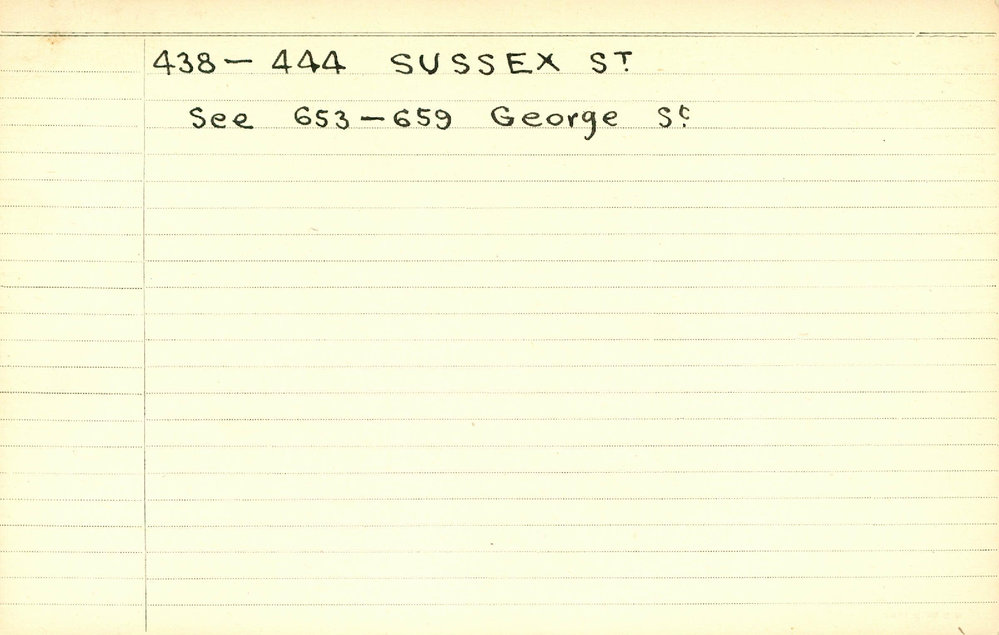 438 — 444 SUSSEX ST
See 653 — 659 George St